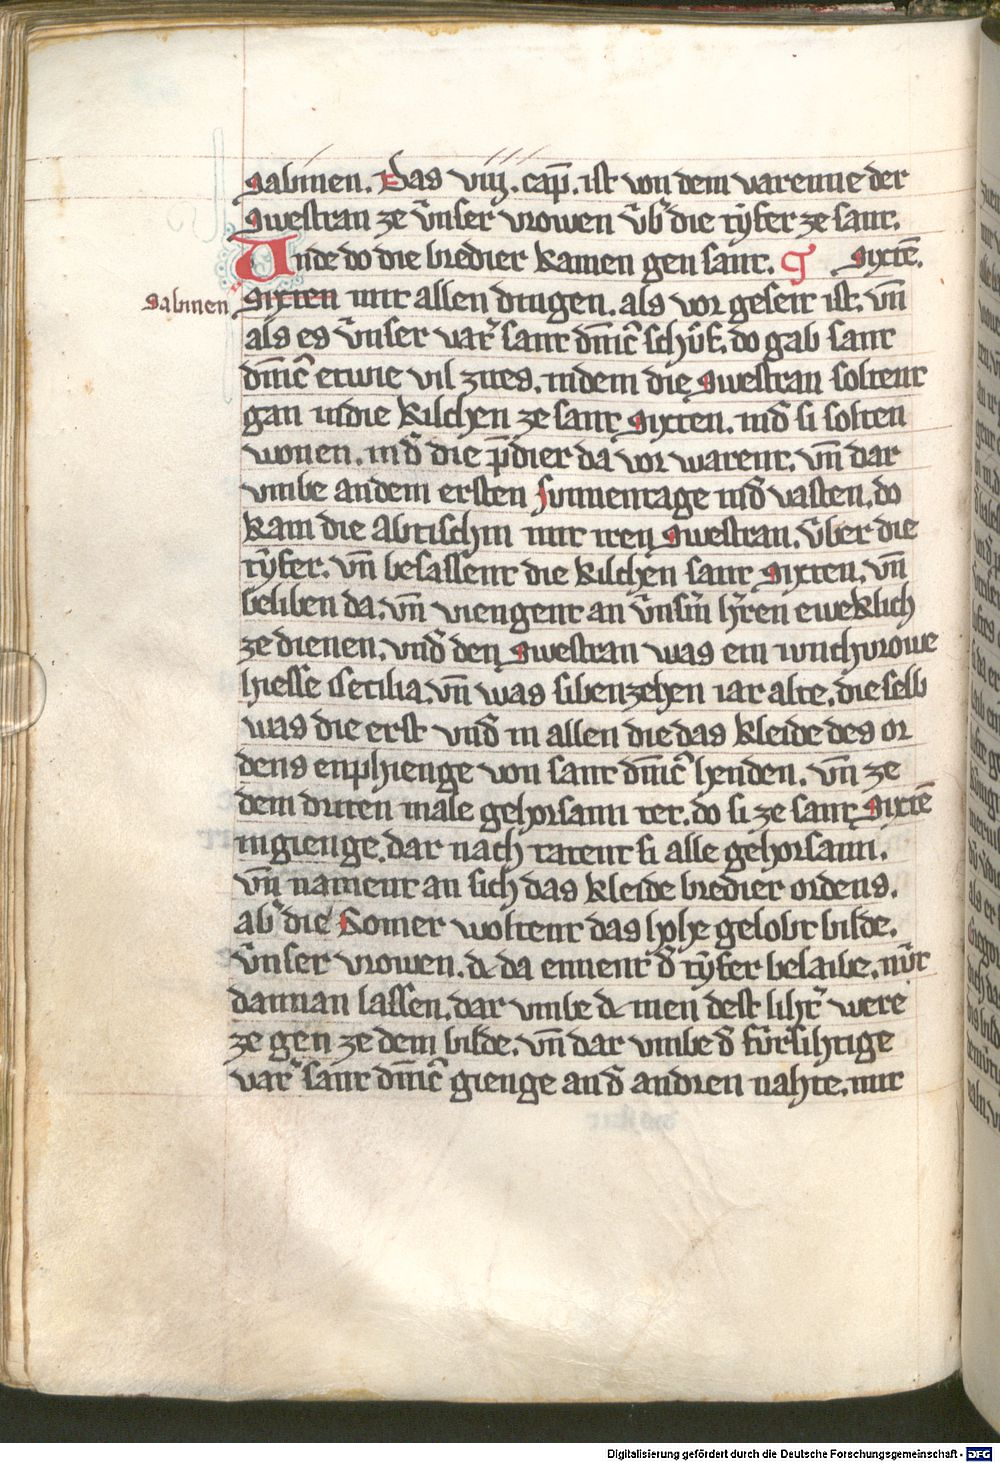 Sabinen. Das viiij. cap̄. ist von dem varenne der
Swestran ze v̂nser vrowen v̂b͛ die tŷfer ze sant.
Unde do die bredier kamen gen sant. Sixtē.
Sabinen Sixten mit allen dingen. als vor geseit ist. vn̄
als es v̂nser vat͛ sant dn̄ic͛ schûf. do gab sant
dn̄ic͛ etwie vil zites. indem die Swestran soltent
gan in die kilchen ze sant Sixten. in d͛ si solten
wonen. in d͛ die p̄dier da vor warent. vn̄ dar
vmbe an dem ersten sunnentage in d͛ vasten. do
kam die Abtischin mit iren Swestran. v̂ber die
tŷfer. vn̄ besassent die kilchen sant Sixten. vn̄
beliben da. vn̄ viengent an v̂nsm̄ h͛ren eweklich
ze dienen. vnd͛ den Swestran was ein iunchvrowe
hiesse Cecilia. vn̄ was sibenzehen iar alte. die selb
was die erst vnd͛ in allen die das kleide des or
dens enphienge von sant dn̄ic͛ henden. vn̄ ze
dem driten male gehorsami tet. do si ze sant Sixtē
ingienge. dar nach tatent si alle gehorsami.
vn̄ nament an sich das kleide bredier ordens.
ab͛ die Romer woltent das hohe gelobt bilde.
v̂nser vrowen. dc da ennent d͛ tŷfer belaibe. nv̂t
dannan lassen. dar vmbe dc men dest liht͛ were
ze gen ze dem bilde. vn̄ dar vmbe d͛ fûrsihtige
vat͛ sant dn̄ic͛ gienge an d͛ andren nahte. mit
Digitalisierung gefördert durch die Deutsche Forschungsgemeinschaft - DFG